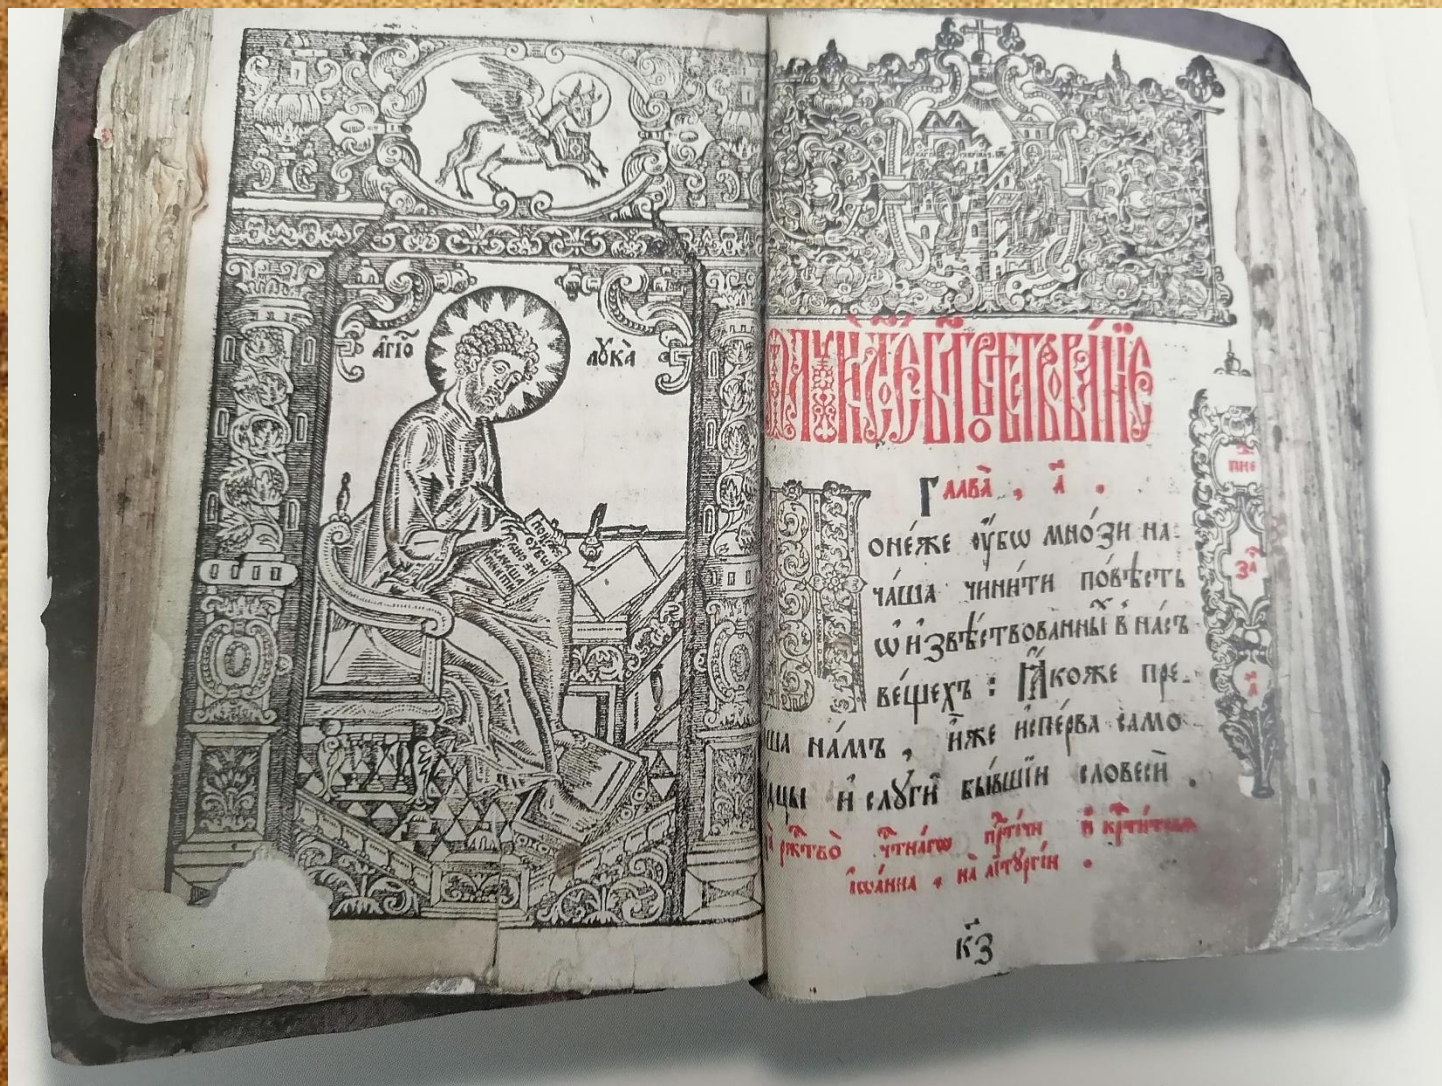 а҆гїѡ лꙋка̀
поне
же
ѹбѡ
мно
ѿ лꙋкѝ ст҃о́е бл҃говѣствова́нїе
Глава̀ , а҃ .
оне́же ᲂу҆́бѡ мно́зи на-
ча́ша чини́ти по́вѣсть
ѡ҆ и҆звѣ́ствованны́хъ в на́съ
ве́щехъ : Ꙗ҆́коже пре-
ша на́мъ , и҆̀же и҆спе́рва само
дцы и҆ слꙋгѝ бы́вшїи словесѝ .
ржⷭ҇тво̀ чⷭ҇тна́гѡ прⷣте́чи и҆ крⷭ҇ти́телѧ
і҆ѡа́нна , на̀ лїтꙋргі́и .
за҃
а҃
к҃з